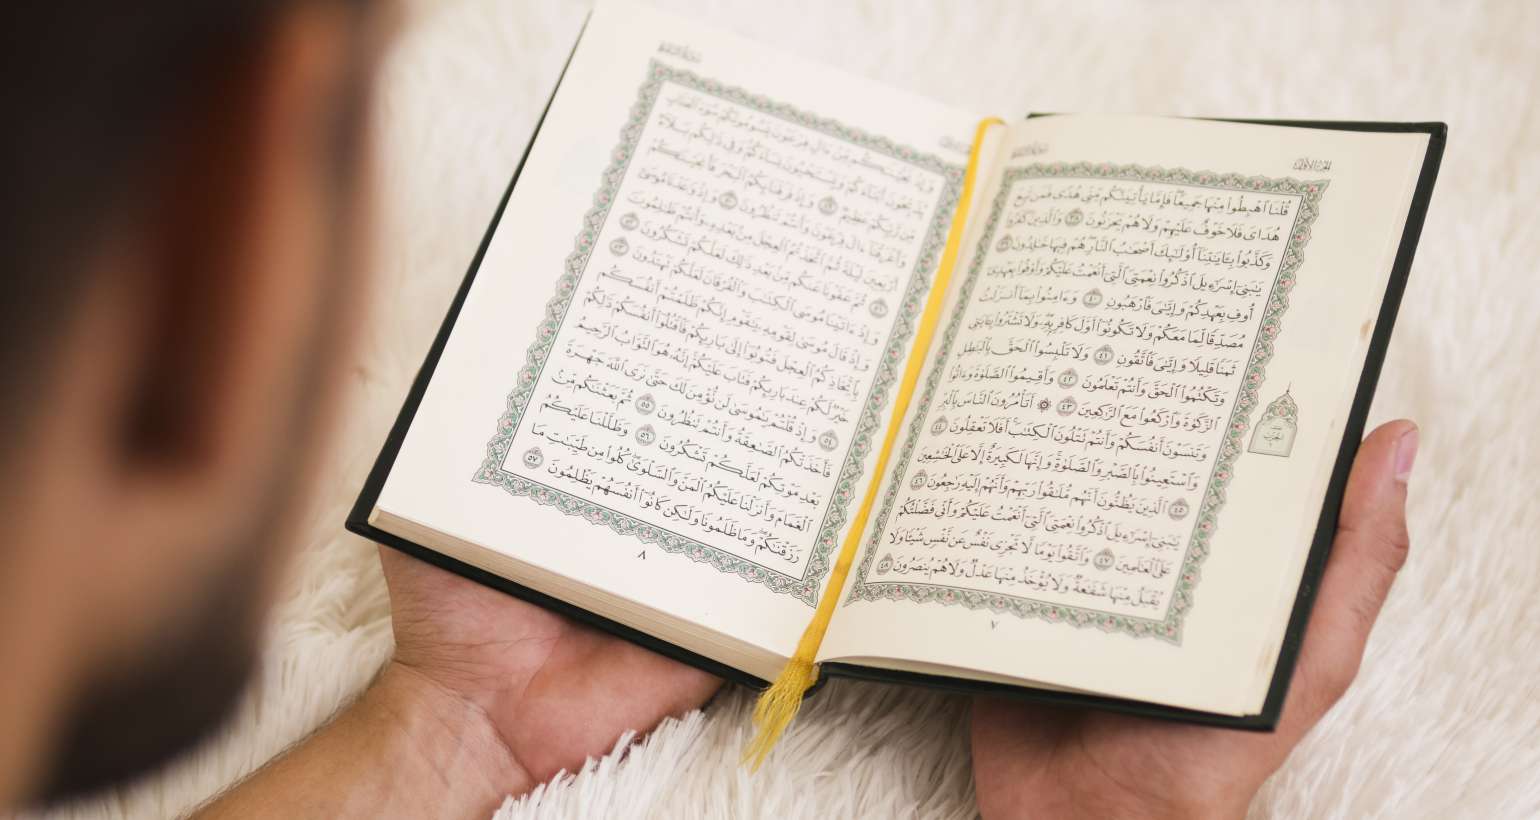 الجزء الأول
قُلْنَا ٱهْبِطُوا۟ مِنْهَا جَمِيعًا فَإِمَّا يَأْتِيَنَّكُم مِّنِّى هُدًى فَمَن تَبِعَ
هُدَاىَ فَلَا خَوْفٌ عَلَيْهِمْ وَلَا هُمْ يَحْزَنُونَ ٣٨ وَٱلَّذِينَ كَفَرُوا۟
وَكَذَّبُوا۟ بِـَٔايَـٰتِنَآ أُو۟لَـٰٓئِكَ أَصْحَـٰبُ ٱلنَّارِ هُمْ فِيهَا خَـٰلِدُونَ ٣٩
يَـٰبَنِىٓ إِسْرَٰٓءِيلَ ٱذْكُرُوا۟ نِعْمَتِىَ ٱلَّتِىٓ أَنْعَمْتُ عَلَيْكُمْ وَأَوْفُوا۟ بِعَهْدِىٓ
أُوفِ بِعَهْدِكُمْ وَإِيَّـٰىَ فَٱرْهَبُونِ ٤٠ وَءَامِنُوا۟ بِمَآ أَنزَلْتُ
مُصَدِّقًا لِّمَا مَعَكُمْ وَلَا تَكُونُوٓا۟ أَوَّلَ كَافِرٍۭ بِهِۦ وَلَا تَشْتَرُوا۟ بِـَٔايَـٰتِى
ثَمَنًا قَلِيلًا وَإِيَّـٰىَ فَٱتَّقُونِ ٤١ وَلَا تَلْبِسُوا۟ ٱلْحَقَّ بِٱلْبَـٰطِلِ
وَتَكْتُمُوا۟ ٱلْحَقَّ وَأَنتُمْ تَعْلَمُونَ ٤٢ وَأَقِيمُوا۟ ٱلصَّلَوٰةَ وَءَاتُوا۟
ٱلزَّكَوٰةَ وَٱرْكَعُوا۟ مَعَ ٱلرَّٰكِعِينَ ٤٣ ۞ أَتَأْمُرُونَ ٱلنَّاسَ بِٱلْبِرِّ
وَتَنسَوْنَ أَنفُسَكُمْ وَأَنتُمْ تَتْلُونَ ٱلْكِتَـٰبَ أَفَلَا تَعْقِلُونَ ٤٤
وَٱسْتَعِينُوا۟ بِٱلصَّبْرِ وَٱلصَّلَوٰةِ وَإِنَّهَا لَكَبِيرَةٌ إِلَّا عَلَى ٱلْخَـٰشِعِينَ
٤٥ ٱلَّذِينَ يَظُنُّونَ أَنَّهُم مُّلَـٰقُوا۟ رَبِّهِمْ وَأَنَّهُمْ إِلَيْهِ رَٰجِعُونَ ٤٦
يَـٰبَنِىٓ إِسْرَٰٓءِيلَ ٱذْكُرُوا۟ نِعْمَتِىَ ٱلَّتِىٓ أَنْعَمْتُ عَلَيْكُمْ وَأَنِّى فَضَّلْتُكُمْ
عَلَى ٱلْعَـٰلَمِينَ ٤٧ وَٱتَّقُوا۟ يَوْمًا لَّا تَجْزِى نَفْسٌ عَن نَّفْسٍ شَيْـًٔا وَلَا
يُقْبَلُ مِنْهَا شَفَـٰعَةٌ وَلَا يُؤْخَذُ مِنْهَا عَدْلٌ وَلَا هُمْ يُنصَرُونَ ٤٨
٧
وَإِذْ نَجَّيْنَـٰكُم مِّنْ ءَالِ فِرْعَوْنَ يَسُومُونَكُمْ سُوٓءَ ٱلْعَذَابِ
يُذَبِّحُونَ أَبْنَآءَكُمْ وَيَسْتَحْيُونَ نِسَآءَكُمْ وَفِى ذَٰلِكُم بَلَآءٌ
مِّن رَّبِّكُمْ عَظِيمٌ ٤٩ وَإِذْ فَرَقْنَا بِكُمُ ٱلْبَحْرَ فَأَنجَيْنَـٰكُمْ
وَأَغْرَقْنَآ ءَالَ فِرْعَوْنَ وَأَنتُمْ تَنظُرُونَ ٥٠ وَإِذْ وَٰعَدْنَا مُوسَىٰٓ
أَرْبَعِينَ لَيْلَةً ثُمَّ ٱتَّخَذْتُمُ ٱلْعِجْلَ مِنۢ بَعْدِهِۦ وَأَنتُمْ ظَـٰلِمُونَ
٥١ ثُمَّ عَفَوْنَا عَنكُم مِّنۢ بَعْدِ ذَٰلِكَ لَعَلَّكُمْ تَشْكُرُونَ ٥٢
وَإِذْ ءَاتَيْنَا مُوسَى ٱلْكِتَـٰبَ وَٱلْفُرْقَانَ لَعَلَّكُمْ تَهْتَدُونَ ٥٣
وَإِذْ قَالَ مُوسَىٰ لِقَوْمِهِۦ يَـٰقَوْمِ إِنَّكُمْ ظَلَمْتُمْ أَنفُسَكُم
بِٱتِّخَاذِكُمُ ٱلْعِجْلَ فَتُوبُوٓا۟ إِلَىٰ بَارِئِكُمْ فَٱقْتُلُوٓا۟ أَنفُسَكُمْ ذَٰلِكُمْ
خَيْرٌ لَّكُمْ عِندَ بَارِئِكُمْ فَتَابَ عَلَيْكُمْ إِنَّهُۥ هُوَ ٱلتَّوَّابُ ٱلرَّحِيمُ
٥٤ وَإِذْ قُلْتُمْ يَـٰمُوسَىٰ لَن نُّؤْمِنَ لَكَ حَتَّىٰ نَرَى ٱللَّهَ جَهْرَةً
فَأَخَذَتْكُمُ ٱلصَّـٰعِقَةُ وَأَنتُمْ تَنظُرُونَ ٥٥ ثُمَّ بَعَثْنَـٰكُم مِّنۢ
بَعْدِ مَوْتِكُمْ لَعَلَّكُمْ تَشْكُرُونَ ٥٦ وَظَلَّلْنَا عَلَيْكُمُ
ٱلْغَمَامَ وَأَنزَلْنَا عَلَيْكُمُ ٱلْمَنَّ وَٱلسَّلْوَىٰ كُلُوا۟ مِن طَيِّبَـٰتِ مَا
رَزَقْنَـٰكُمْ وَمَا ظَلَمُونَا وَلَـٰكِن كَانُوٓا۟ أَنفُسَهُمْ يَظْلِمُونَ ٥٧
٨